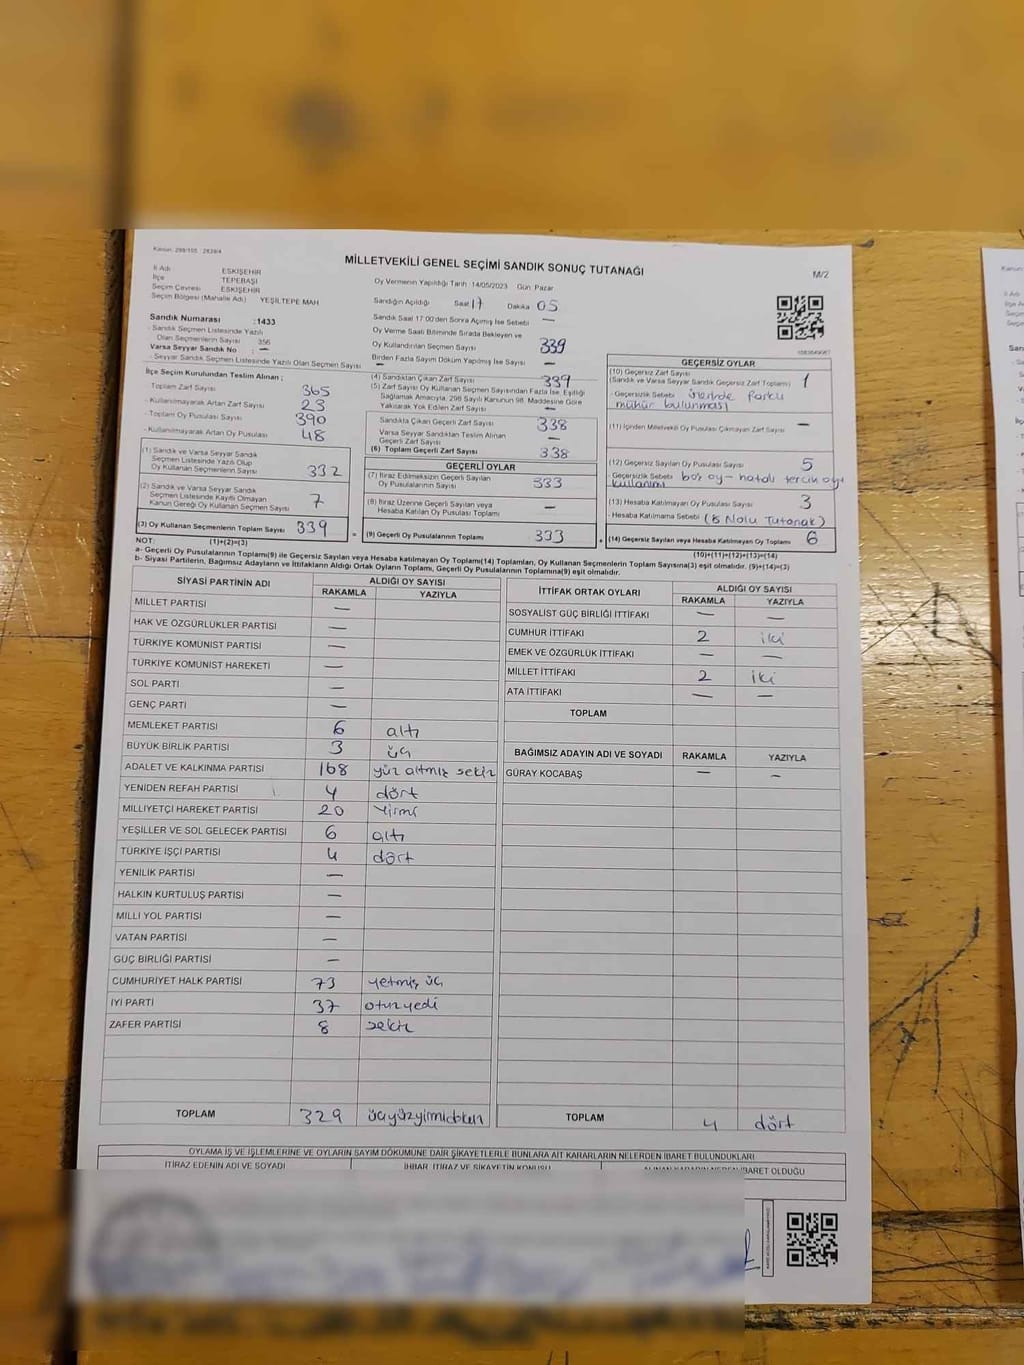 Kanun: 298/105 2839/4
MİLLETVEKİLİ GENEL SEÇİMİ SANDIK SONUÇ TUTANAĞI
M/2
İl Adı ESKİŞEHİR
İlçe TEPEBAŞI
Seçim Çevresi ESKİŞEHİR
Seçim Bölgesi (Mahalle Adı) YEŞİLTEPE MAH
Sandık Numarası :1433
- Sandık Seçmen Listesinde Yazılı
Olan Seçmenlerin Sayısı 356
Varsa Seyyar Sandık No : —
- Seyyar Sandık Seçmen Listesinde Yazılı Olan Seçmen Sayısı —
Oy Vermenin Yapıldığı Tarih 14/05/2023 Gün Pazar
Sandığın Açıldığı Saat 17 Dakika 05
Sandık Saat 17:00'den Sonra Açılmış İse Sebebi —
Oy Verme Saati Bitiminde Sırada Bekleyen ve
Oy Kullandırılan Seçmen Sayısı 339
Birden Fazla Sayım Döküm Yapılmış İse Sayısı —
İlçe Seçim Kurulundan Teslim Alınan ;
- Toplam Zarf Sayısı 365
- Kullanılmayarak Artan Zarf Sayısı 23
- Toplam Oy Pusulası Sayısı 390
- Kullanılmayarak Artan Oy Pusulası 48
(1) Sandık ve Varsa Seyyar Sandık
Seçmen Listesinde Yazılı Olup
Oy Kullanan Seçmenlerin Sayısı 332
(2) Sandık ve Varsa Seyyar Sandık
Seçmen Listesinde Kayıtlı Olmayan
Kanun Gereği Oy Kullanan Seçmen Sayısı 7
(3) Oy Kullanan Seçmenlerin Toplam Sayısı 339
(1)+(2)=(3)
(4) Sandıktan Çıkan Zarf Sayısı 339
(5) Zarf Sayısı Oy Kullanan Seçmen Sayısından Fazla İse, Eşitliği
Sağlamak Amacıyla, 298 Sayılı Kanunun 98. Maddesine Göre
Yakılarak Yok Edilen Zarf Sayısı —
Sandıkta Çıkan Geçerli Zarf Sayısı 338
Varsa Seyyar Sandıktan Teslim Alınan
Geçerli Zarf Sayısı —
(6) Toplam Geçerli Zarf Sayısı 338
GEÇERLİ OYLAR
(7) İtiraz Edilmeksizin Geçerli Sayılan
Oy Pusulalarının Sayısı 333
(8) İtiraz Üzerine Geçerli Sayılan veya
Hesaba Katılan Oy Pusulalarının Toplamı —
= (9) Geçerli Oy Pusulalarının Toplamı 333
GEÇERSİZ OYLAR
(10) Geçersiz Zarf Sayısı
(Sandık ve Varsa Seyyar Sandık Geçersiz Zarf Toplamı) 1
- Geçersizlik Sebebi üzerinde farklı
mühür bulunması
(11) İçinden Milletvekili Oy Pusulası Çıkmayan Zarf Sayısı —
(12) Geçersiz Sayılan Oy Pusulası Sayısı 5
- Geçersizlik Sebebi boş oy - hatalı tercih oyu
kullanımı
(13) Hesaba Katılmayan Oy Pusulası Sayısı 3
- Hesaba Katılmama Sebebi (B Nolu Tutanak)
+ (14) Geçersiz Sayılan veya Hesaba Katılmayan Oy Toplamı 6
(10)+(11)+(12)+(13)=(14)
NOT:
a- Geçerli Oy Pusulalarının Toplamı(9) ile Geçersiz Sayılan veya Hesaba katılmayan Oy Toplamı(14) Toplamları, Oy Kullanan Seçmenlerin Toplam Sayısına(3) eşit olmalıdır. (9)+(14)=(3)
b- Siyasi Partilerin, Bağımsız Adayların ve İttifakların Aldığı Ortak Oyların Toplamı, Geçerli Oy Pusulalarının Toplamına(9) eşit olmalıdır.
SİYASİ PARTİNİN ADI ALDIĞI OY SAYISI
RAKAMLA YAZIYLA
MİLLET PARTİSİ —
HAK VE ÖZGÜRLÜKLER PARTİSİ —
TÜRKİYE KOMÜNİST PARTİSİ —
TÜRKİYE KOMÜNİST HAREKETİ —
SOL PARTİ —
GENÇ PARTİ —
MEMLEKET PARTİSİ 6 altı
BÜYÜK BİRLİK PARTİSİ 3 üç
ADALET VE KALKINMA PARTİSİ 168 yüz altmış sekiz
YENİDEN REFAH PARTİSİ 4 dört
MİLLİYETÇİ HAREKET PARTİSİ 20 yirmi
YEŞİLLER VE SOL GELECEK PARTİSİ 6 altı
TÜRKİYE İŞÇİ PARTİSİ 4 dört
YENİLİK PARTİSİ —
HALKIN KURTULUŞ PARTİSİ —
MİLLİ YOL PARTİSİ —
VATAN PARTİSİ —
GÜÇ BİRLİĞİ PARTİSİ —
CUMHURİYET HALK PARTİSİ 73 yetmiş üç
İYİ PARTİ 37 otuzyedi
ZAFER PARTİSİ 8 sekiz
TOPLAM 329 üçyüzyirmidokuz
İTTİFAK ORTAK OYLARI ALDIĞI OY SAYISI
RAKAMLA YAZIYLA
SOSYALİST GÜÇ BİRLİĞİ İTTİFAKI — —
CUMHUR İTTİFAKI 2 iki
EMEK VE ÖZGÜRLÜK İTTİFAKI — —
MİLLET İTTİFAKI 2 iki
ATA İTTİFAKI — —
TOPLAM
BAĞIMSIZ ADAYIN ADI VE SOYADI RAKAMLA YAZIYLA
GÜRAY KOCABAŞ — —
TOPLAM 4 dört
OYLAMA İŞ VE İŞLEMLERİNE VE OYLARIN SAYIM DÖKÜMÜNE DAİR ŞİKAYETLERLE BUNLARA AİT KARARLARIN NELERDEN İBARET BULUNDUKLARI
İTİRAZ EDENİN ADI VE SOYADI İHBAR, İTİRAZ VE ŞİKAYETİN KONUSU ALINAN KARARIN NEDEN İBARET OLDUĞU